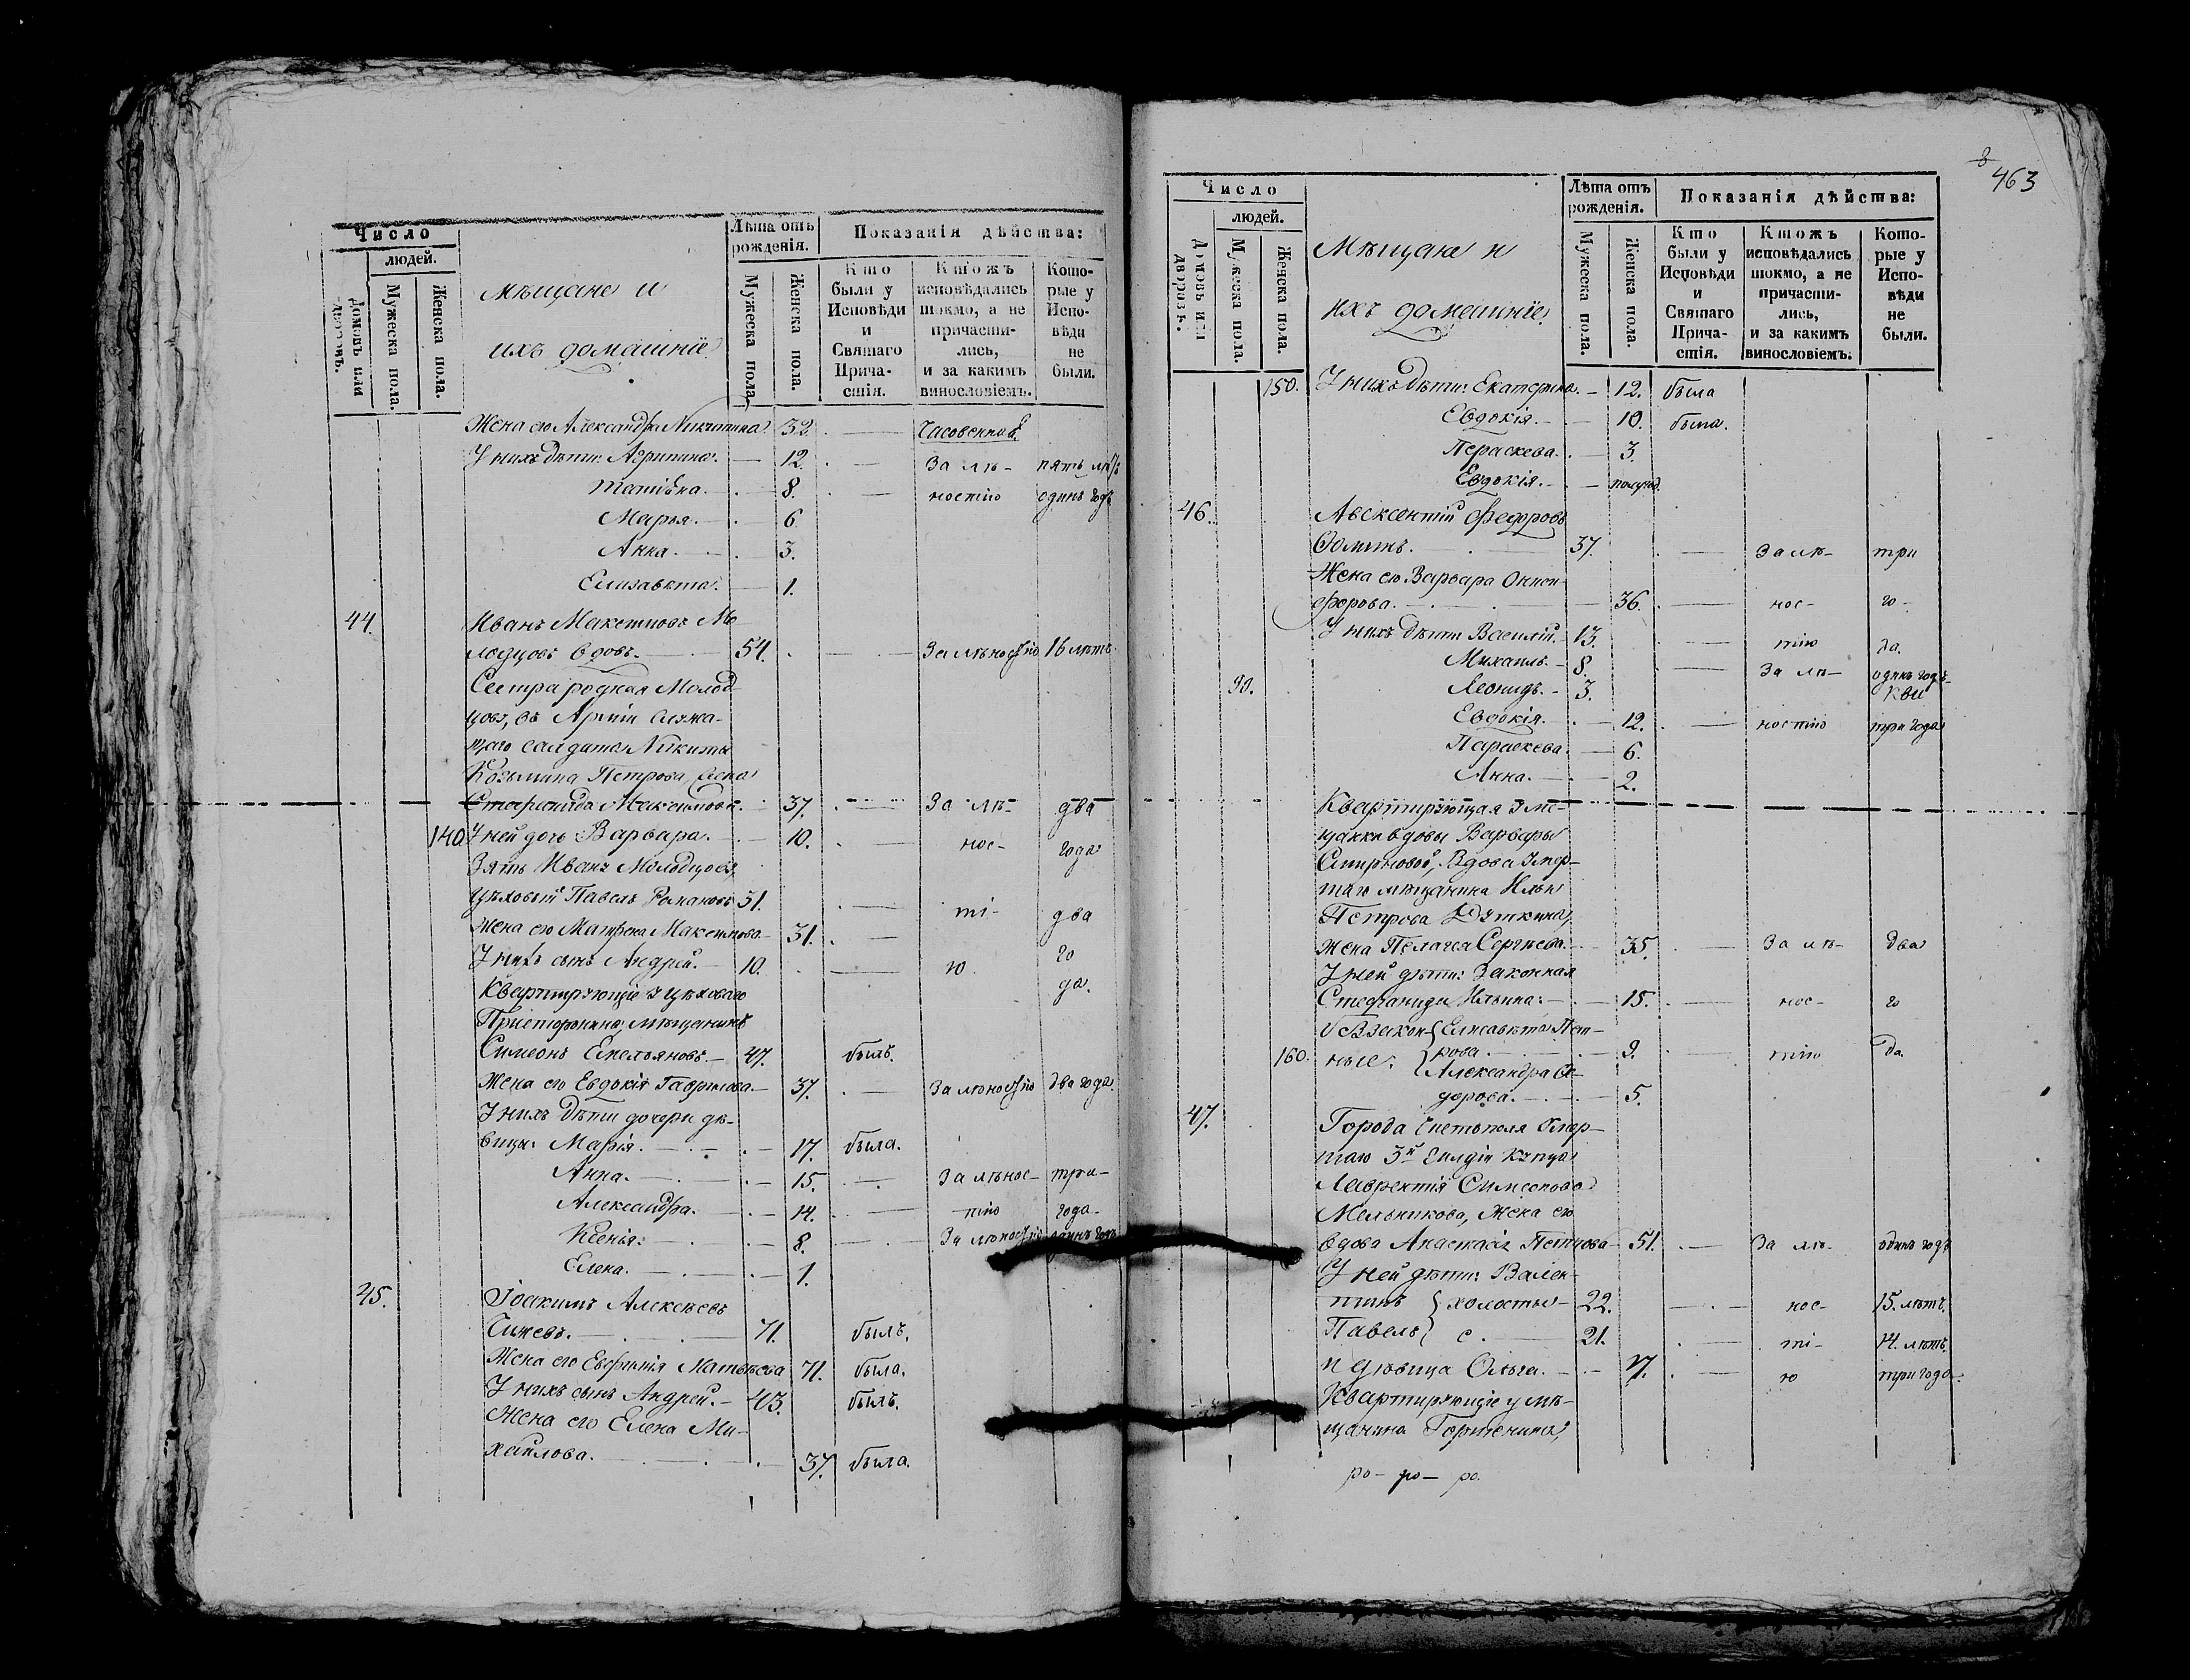 Число
людей.
Домовъ или дворовъ.
Мужеска пола.
Женска пола.
Мѣщане и
ихъ домашніе.
Лѣта отъ рожденія.
Мужеска пола.
Женска пола.
Показанія дѣйства:
Кто были у Исповѣди и Святаго Прича-стія.
Ктожъ исповѣдались токмо, а не причасти-лись, и за какимъ винословіемъ.
Кото-рые у Испо-вѣди не были.
Жена его Александра Никитина 32. Часовенной
У нихъ дѣти: Агрипина. 12. За лѣ- пять лѣтъ
Татіана. 8. ностію одинъ годъ
Марья. 6
Анна. 3.
Елизавета. 1.
44. Иванъ Максимовъ Мо-
лодцовъ вдовъ. 54. За лѣностію 16 лѣтъ.
Сестра родная Молод-
цова, въ Арміи служа-
щаго солдата Никиты
Козьмина Петрова, жена
Стефанида Максимова. 37. За лѣ- два
140 У ней дочь Варвара. 10. нос- года
Зять Ивана Молодцова,
Цѣховый Павелъ Романовъ 31. ті- два
Жена его Матрена Максимова 31. го
У нихъ сынъ Андрей. 10. ю. да.
Квартирующіе у цѣховаго
мѣщанинъ
Симеонъ Емельяновъ. 47. былъ.
Жена его Евдокія Гаврилова 37. За лѣностію два года
У нихъ дѣти дочери дѣ-
вицы: Марія. 17. была.
Анна. 15. За лѣнос- три-
Александра. 14. тію года-
Ксенія: 8. За лѣностію одинъ годъ
Елена. 1.
45. Іоакимъ Алексѣевъ
Чижевъ. 71. былъ.
Жена его Евфимія Матвѣева 71. была.
У нихъ сынъ Андрей. 43. былъ.
Жена его Елена Ми-
хайлова. 37. была.
463
Число
людей.
Домовъ или дворовъ.
Мужеска пола.
Женска пола.
Мѣщане и
ихъ домашніе.
Лѣта отъ рожденія.
Мужеска пола.
Женска пола.
Показанія дѣйства:
Кто были у Исповѣди и Святаго Прича-стія.
Ктожъ исповѣдались токмо, а не причасти-лись, и за какимъ винословіемъ.
Кото-рые у Испо-вѣди не были.
150. У нихъ дѣти: Екатерина. 12. была
Евдокія. 10. была.
Пераскева. 3.
Евдокія. полугод.
46. Авксентій Федоровъ
37. За лѣ- три
Жена его Варвара Ониси-
форова. 36. нос- го-
У нихъ дѣти Василій. 13. тію да.
Михаилъ. 8. За лѣ- одинъ годъ
90. Леонидъ. 3.
Евдокія. 12. ностію три года
Параскева. 6.
Анна. 2.
Квартирующая у мѣ-
щанки вдовы Варвары
Смирновой, Вдова умер-
шаго мѣщанина Ильи
Петрова
жена Пелагея Сергѣева. 35. За лѣ- два
У ней дѣти: Законная
Стефанида Ильина. 15. нос- го
160. Незакон-ныя: Елисавета Пет-
рова. 9. тію да.
Александра Фе-
дорова. 5.
47. Города Чистополя Умер-
шаго 3й Гильдіи купца
Лаврентія Симеонова
Мельникова, жена его
вдова Анастасія 51. За лѣ- одинъ годъ
У ней дѣти: Вален-
тинъ холосты- 22. нос- 15. лѣтъ.
Павелъ е. 21. ті- 14. лѣтъ.
и дѣвица Ольга. 17. ю три года
Квартирующіе у мѣ-
щанина
ро- ро- ро.